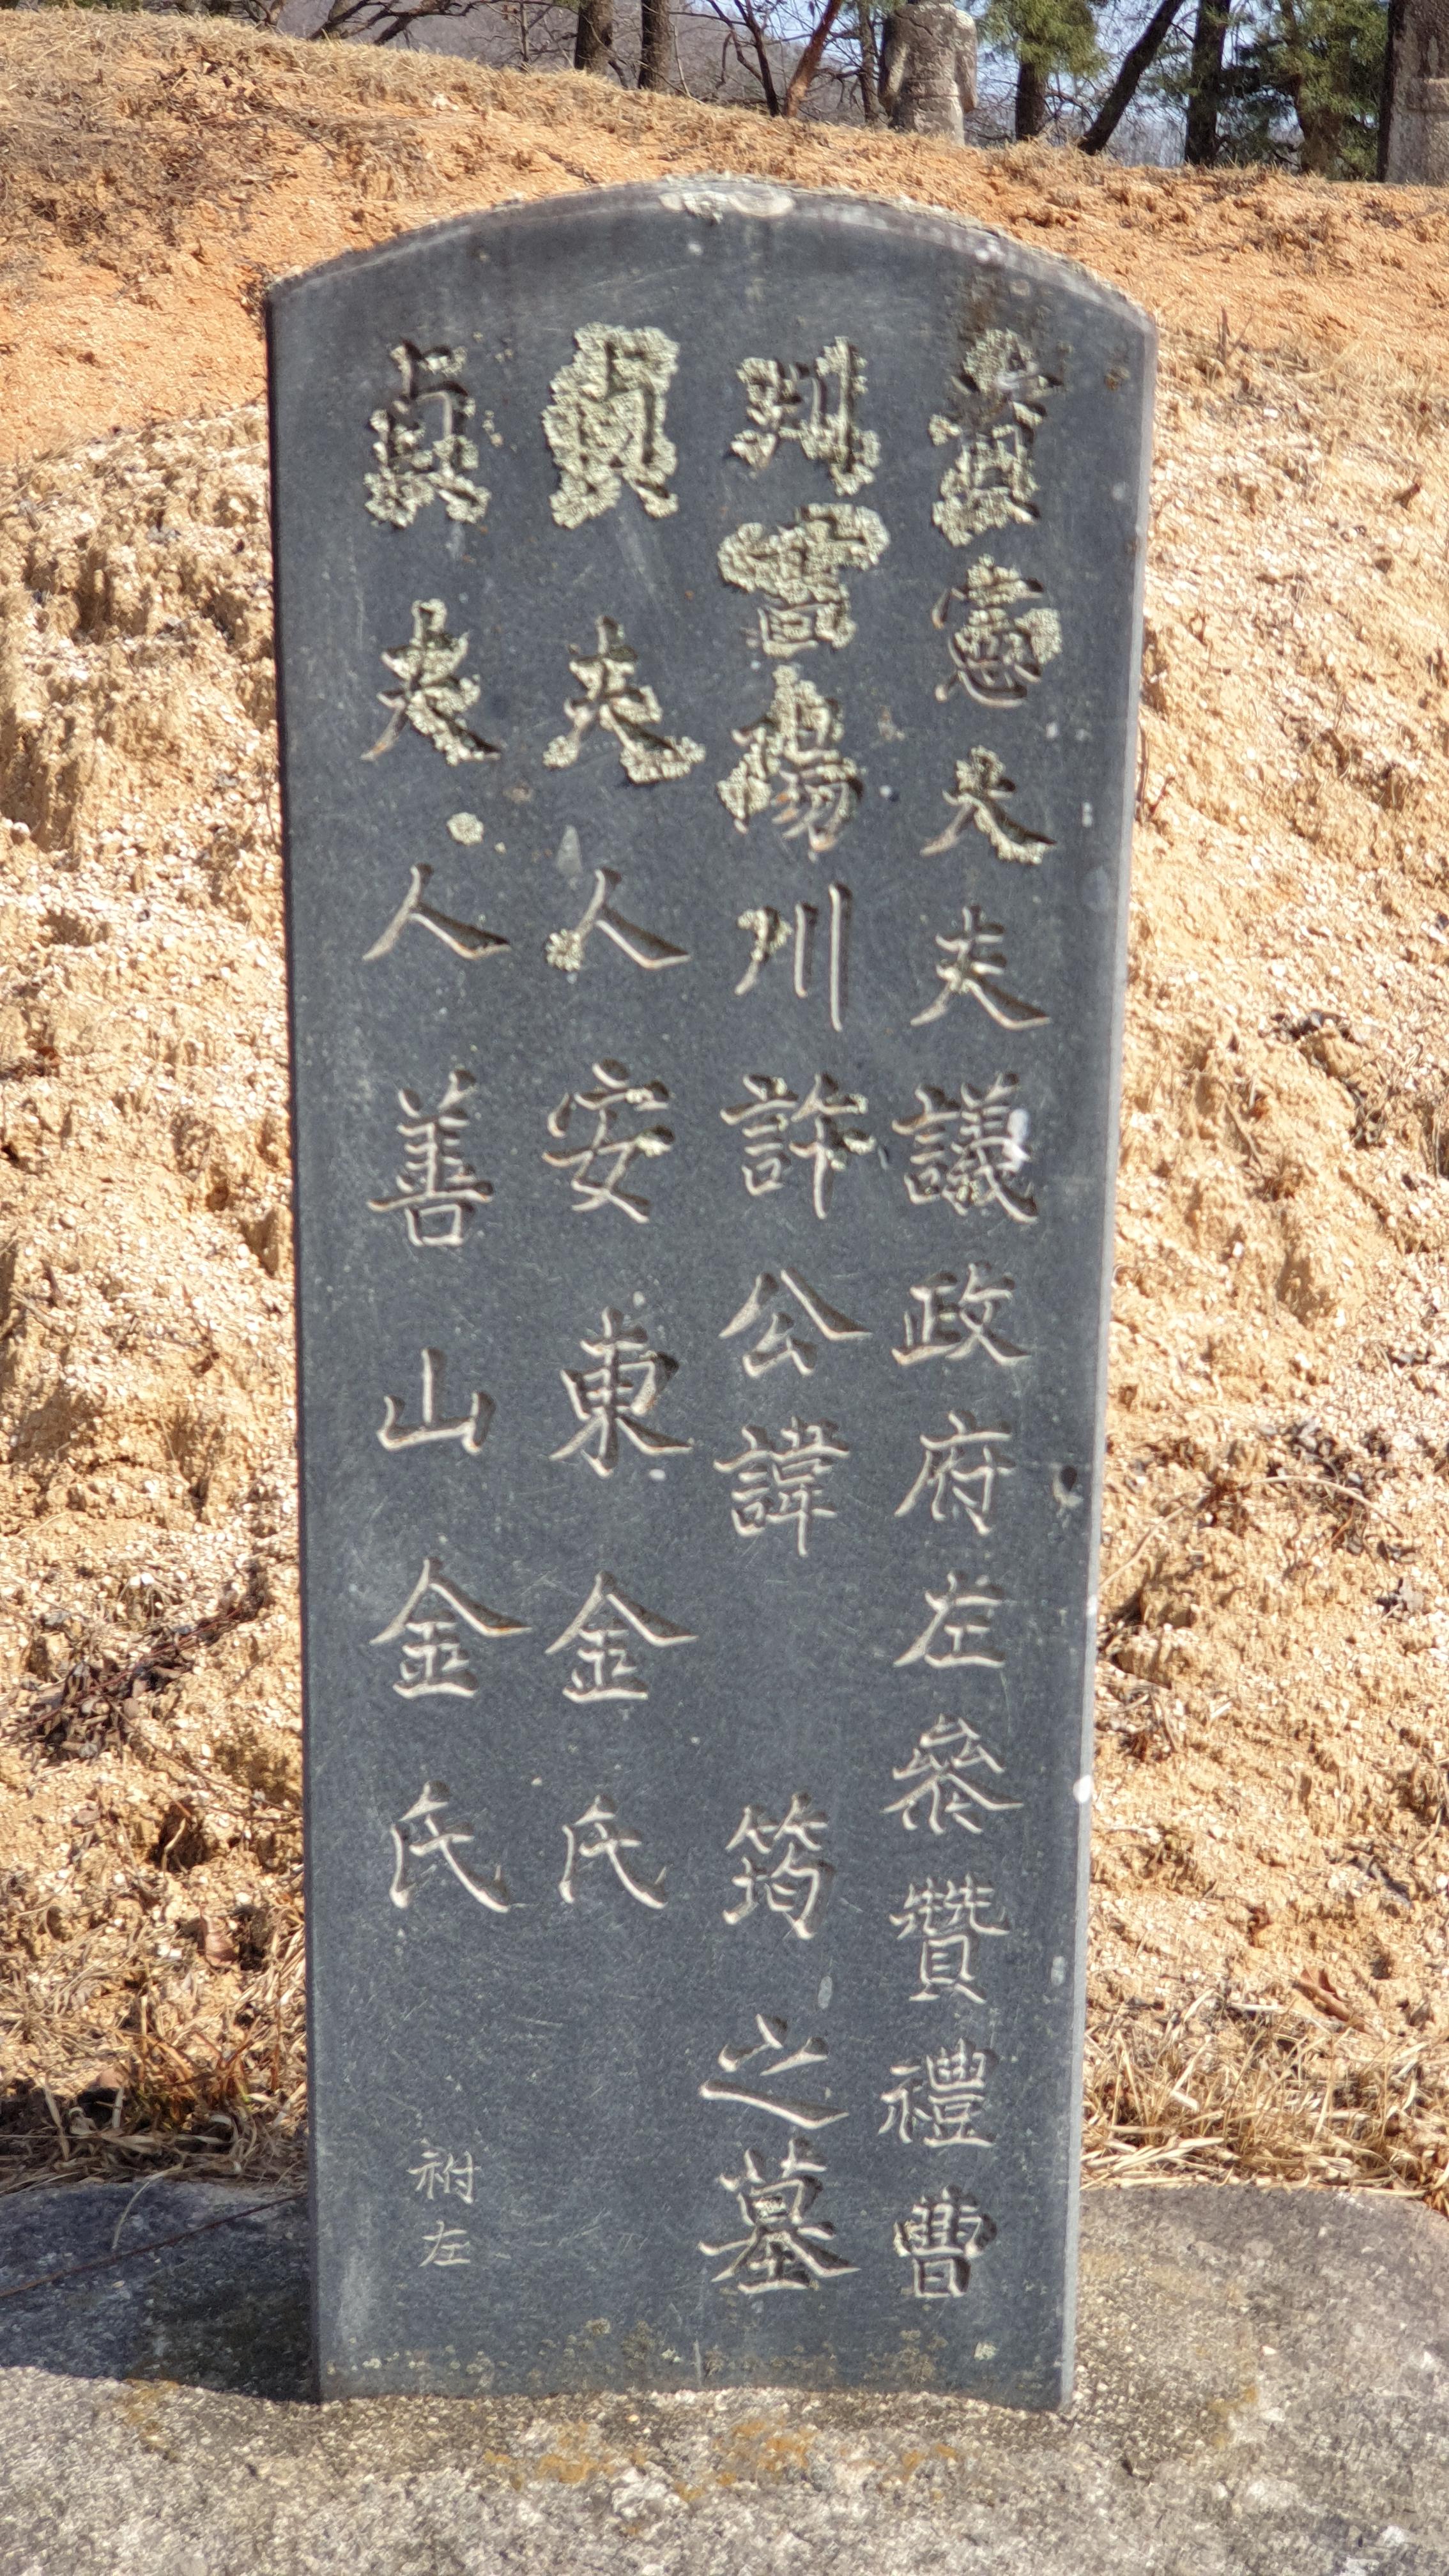 資憲大夫議政府左參贊禮曹
判書陽川許公諱 筠之墓
貞夫人安東金氏
貞夫人善山金氏 祔左